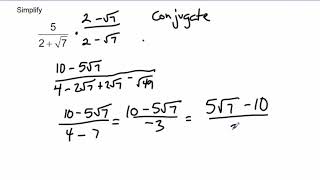 Simplify
5/(2+√7) · (2-√7)/(2-√7) Conjugate
(10-5√7)/(4-2√7+2√7-√49)
(10-5√7)/(4-7) = (10-5√7)/(-3) = (5√7-10)/